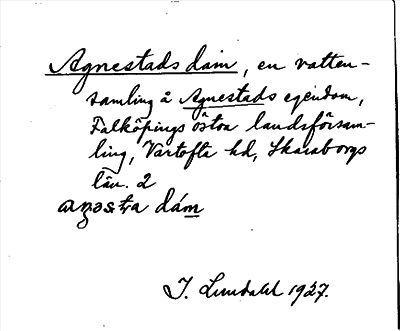 Agnestads dam, en vatten-
samling å Agnestads egendom,
Falköpings östra landsförsam-
ling, Vartofta hd, Skaraborgs
län. 2
dám
J. Lundahl 1927.